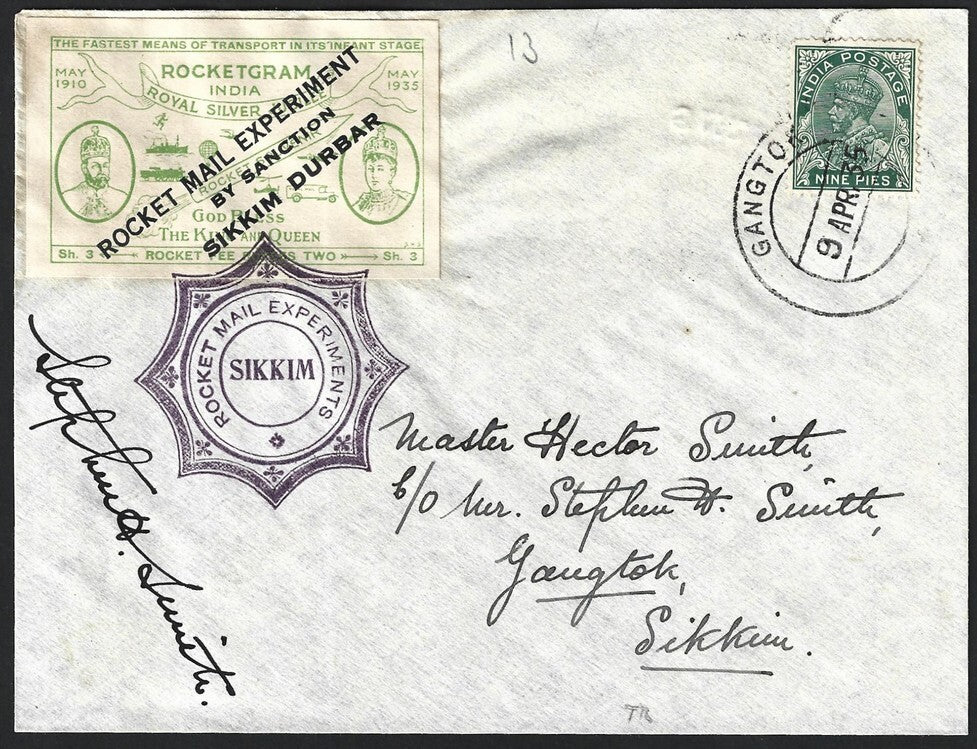 THE FASTEST MEANS OF TRANSPORT IN ITS INFANT STAGE
MAY 1910
ROCKETGRAM
MAY 1935
INDIA
ROYAL SILVER
GOD
THE AND QUEEN
Sh. 3 ROCKET TWO Sh. 3
ROCKET MAIL EXPERIMENT
BY SANCTION
SIKKIM DURBAR
13
INDIA POSTAGE
NINE PIES
9 APR
ROCKET MAIL EXPERIMENTS
SIKKIM
Stephen H. Smith.
Master Hector Smith,
c/o Mr. Stephen H. Smith,
Gangtok,
Sikkim.
TB